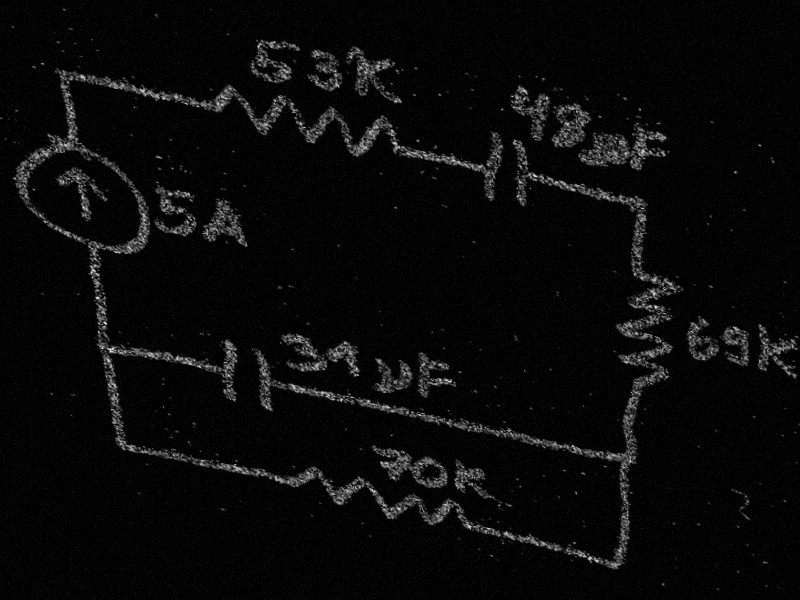 53K
48uF
5A
69K
31uF
30K